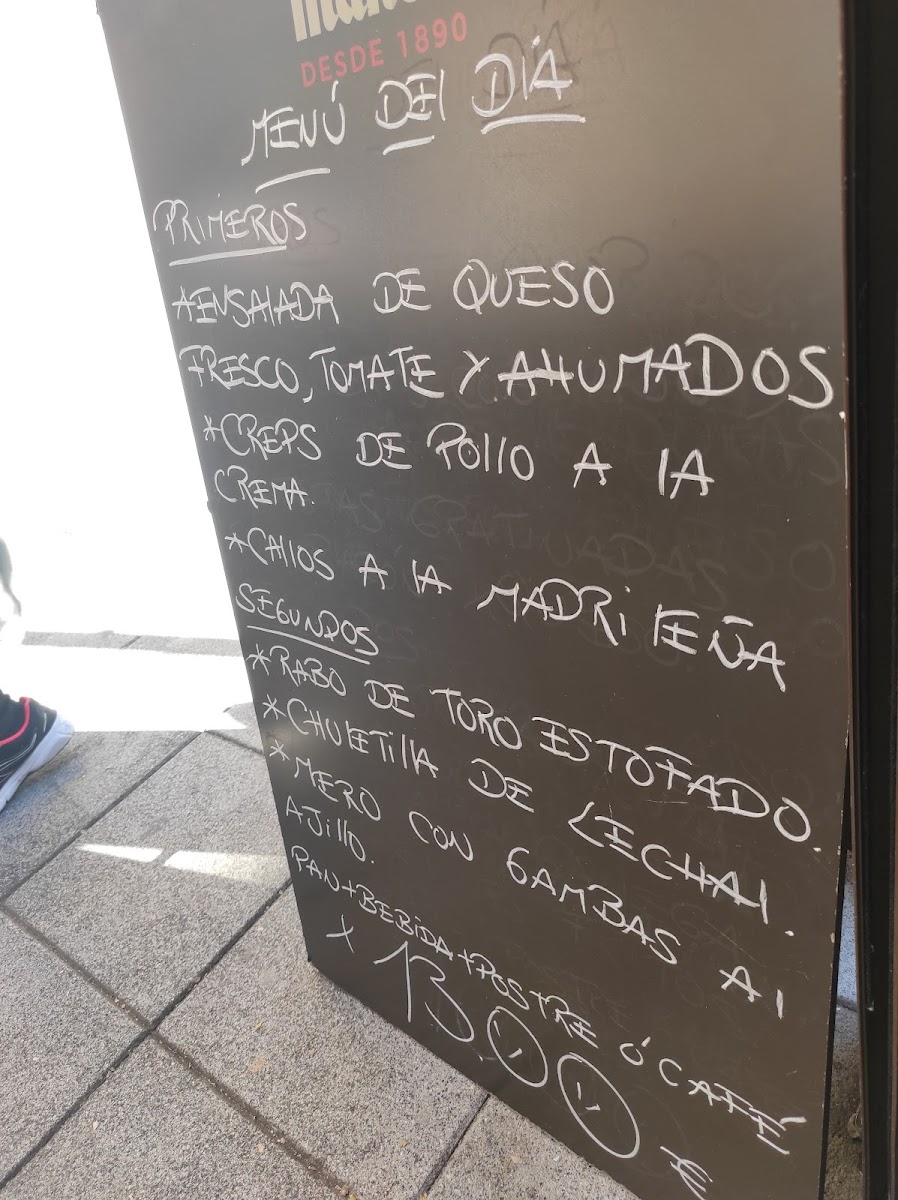 DESDE 1890
MENÚ DEL DÍA
PRIMEROS
*ENSALADA DE QUESO
FRESCO, TOMATE Y AHUMADOS
*CREPS DE POLLO A LA
CREMA.
*CALLOS A LA MADRILEÑA
SEGUNDOS
*RABO DE TORO ESTOFADO.
*CHULETILLA DE LECHAL.
*MERO CON GAMBAS AL
AJILLO.
PAN+BEBIDA+POSTRE Ó CAFÉ
X 13'00 €